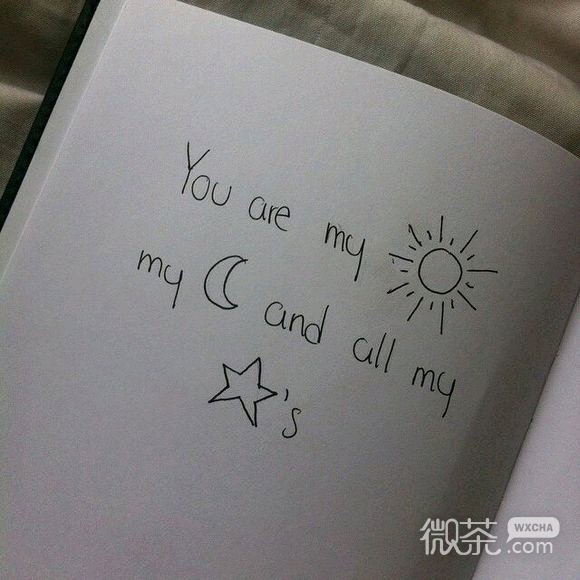 You are my
my and all my
's
微茶 WXCHA
.com